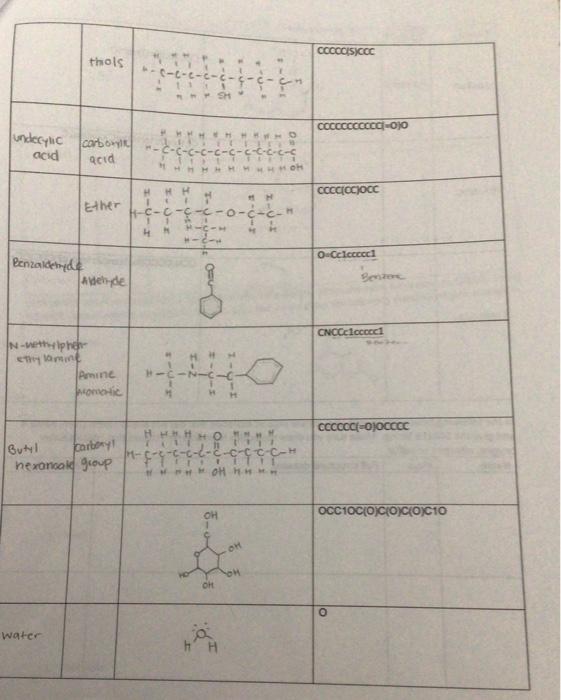 thiols
SH
CCCCC(S)CCC
undecylic
acid
carboxylic
acid
OH
CCCCCCCCCCC(=O)O
Ether
CCCC(CC)OCC
Benzaldehyde
Aldehyde
O=Cc1ccccc1
Benzene
N-methylphen
ethylamine
Amine
Aromatic
H-C-N-C-C-
CNCCc1ccccc1
Butyl
hexanoate
carbonyl
group
OH
CCCCCC(=O)OCCCC
OH
C
O
OH
HO
OH
OH
OCC1OC(O)C(O)C(O)C1O
water
O
H H
O